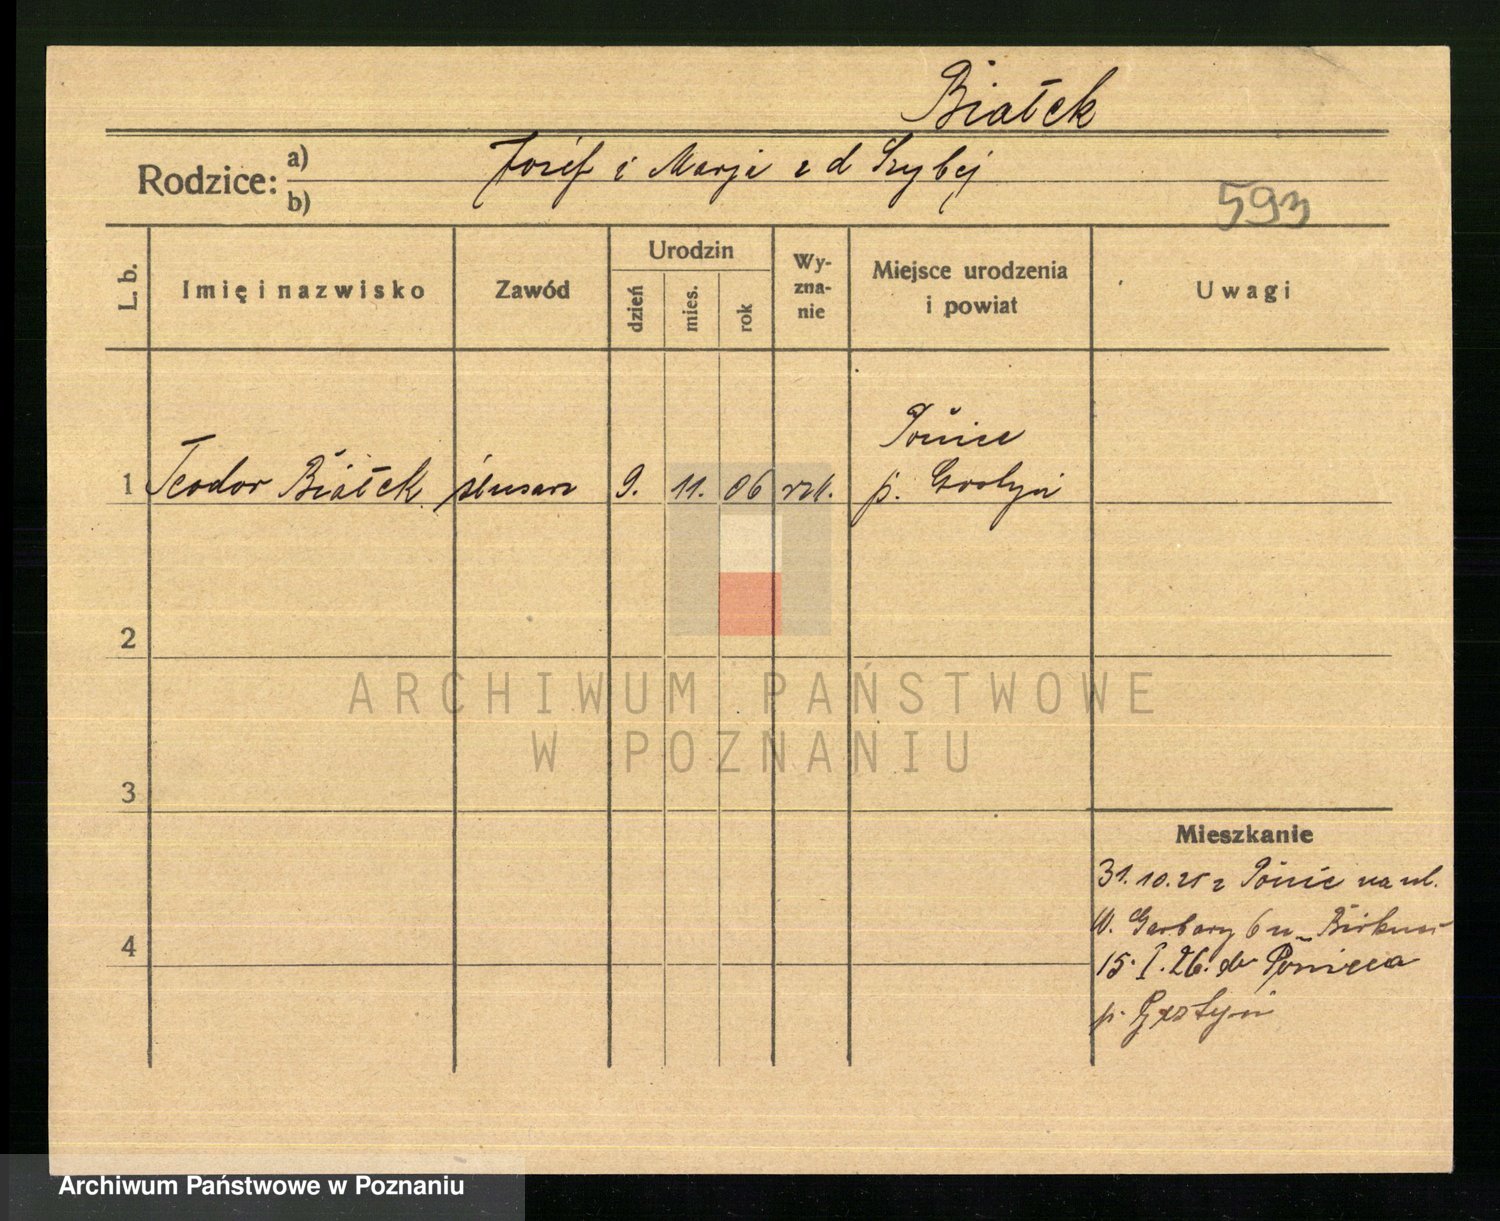 Białek
Rodzice: a) Józef i Marja z d Szybej
b)
593
L. b.
Imię i nazwisko
Zawód
Urodzin
dzień
mies.
rok
Wy-
zna-
nie
Miejsce urodzenia
i powiat
Uwagi
Pońiec
1 Teodor Białek ślusarz 9. 11. 06 rzk. p. Gostyń
2
ARCHIWUM PAŃSTWOWE
W POZNANIU
3
Mieszkanie
31.10.25 z Pońiec na ul.
W. Garbary 6 u
4
15. I. 26. do Ponieca
p. Gostyń
Archiwum Państwowe w Poznaniu